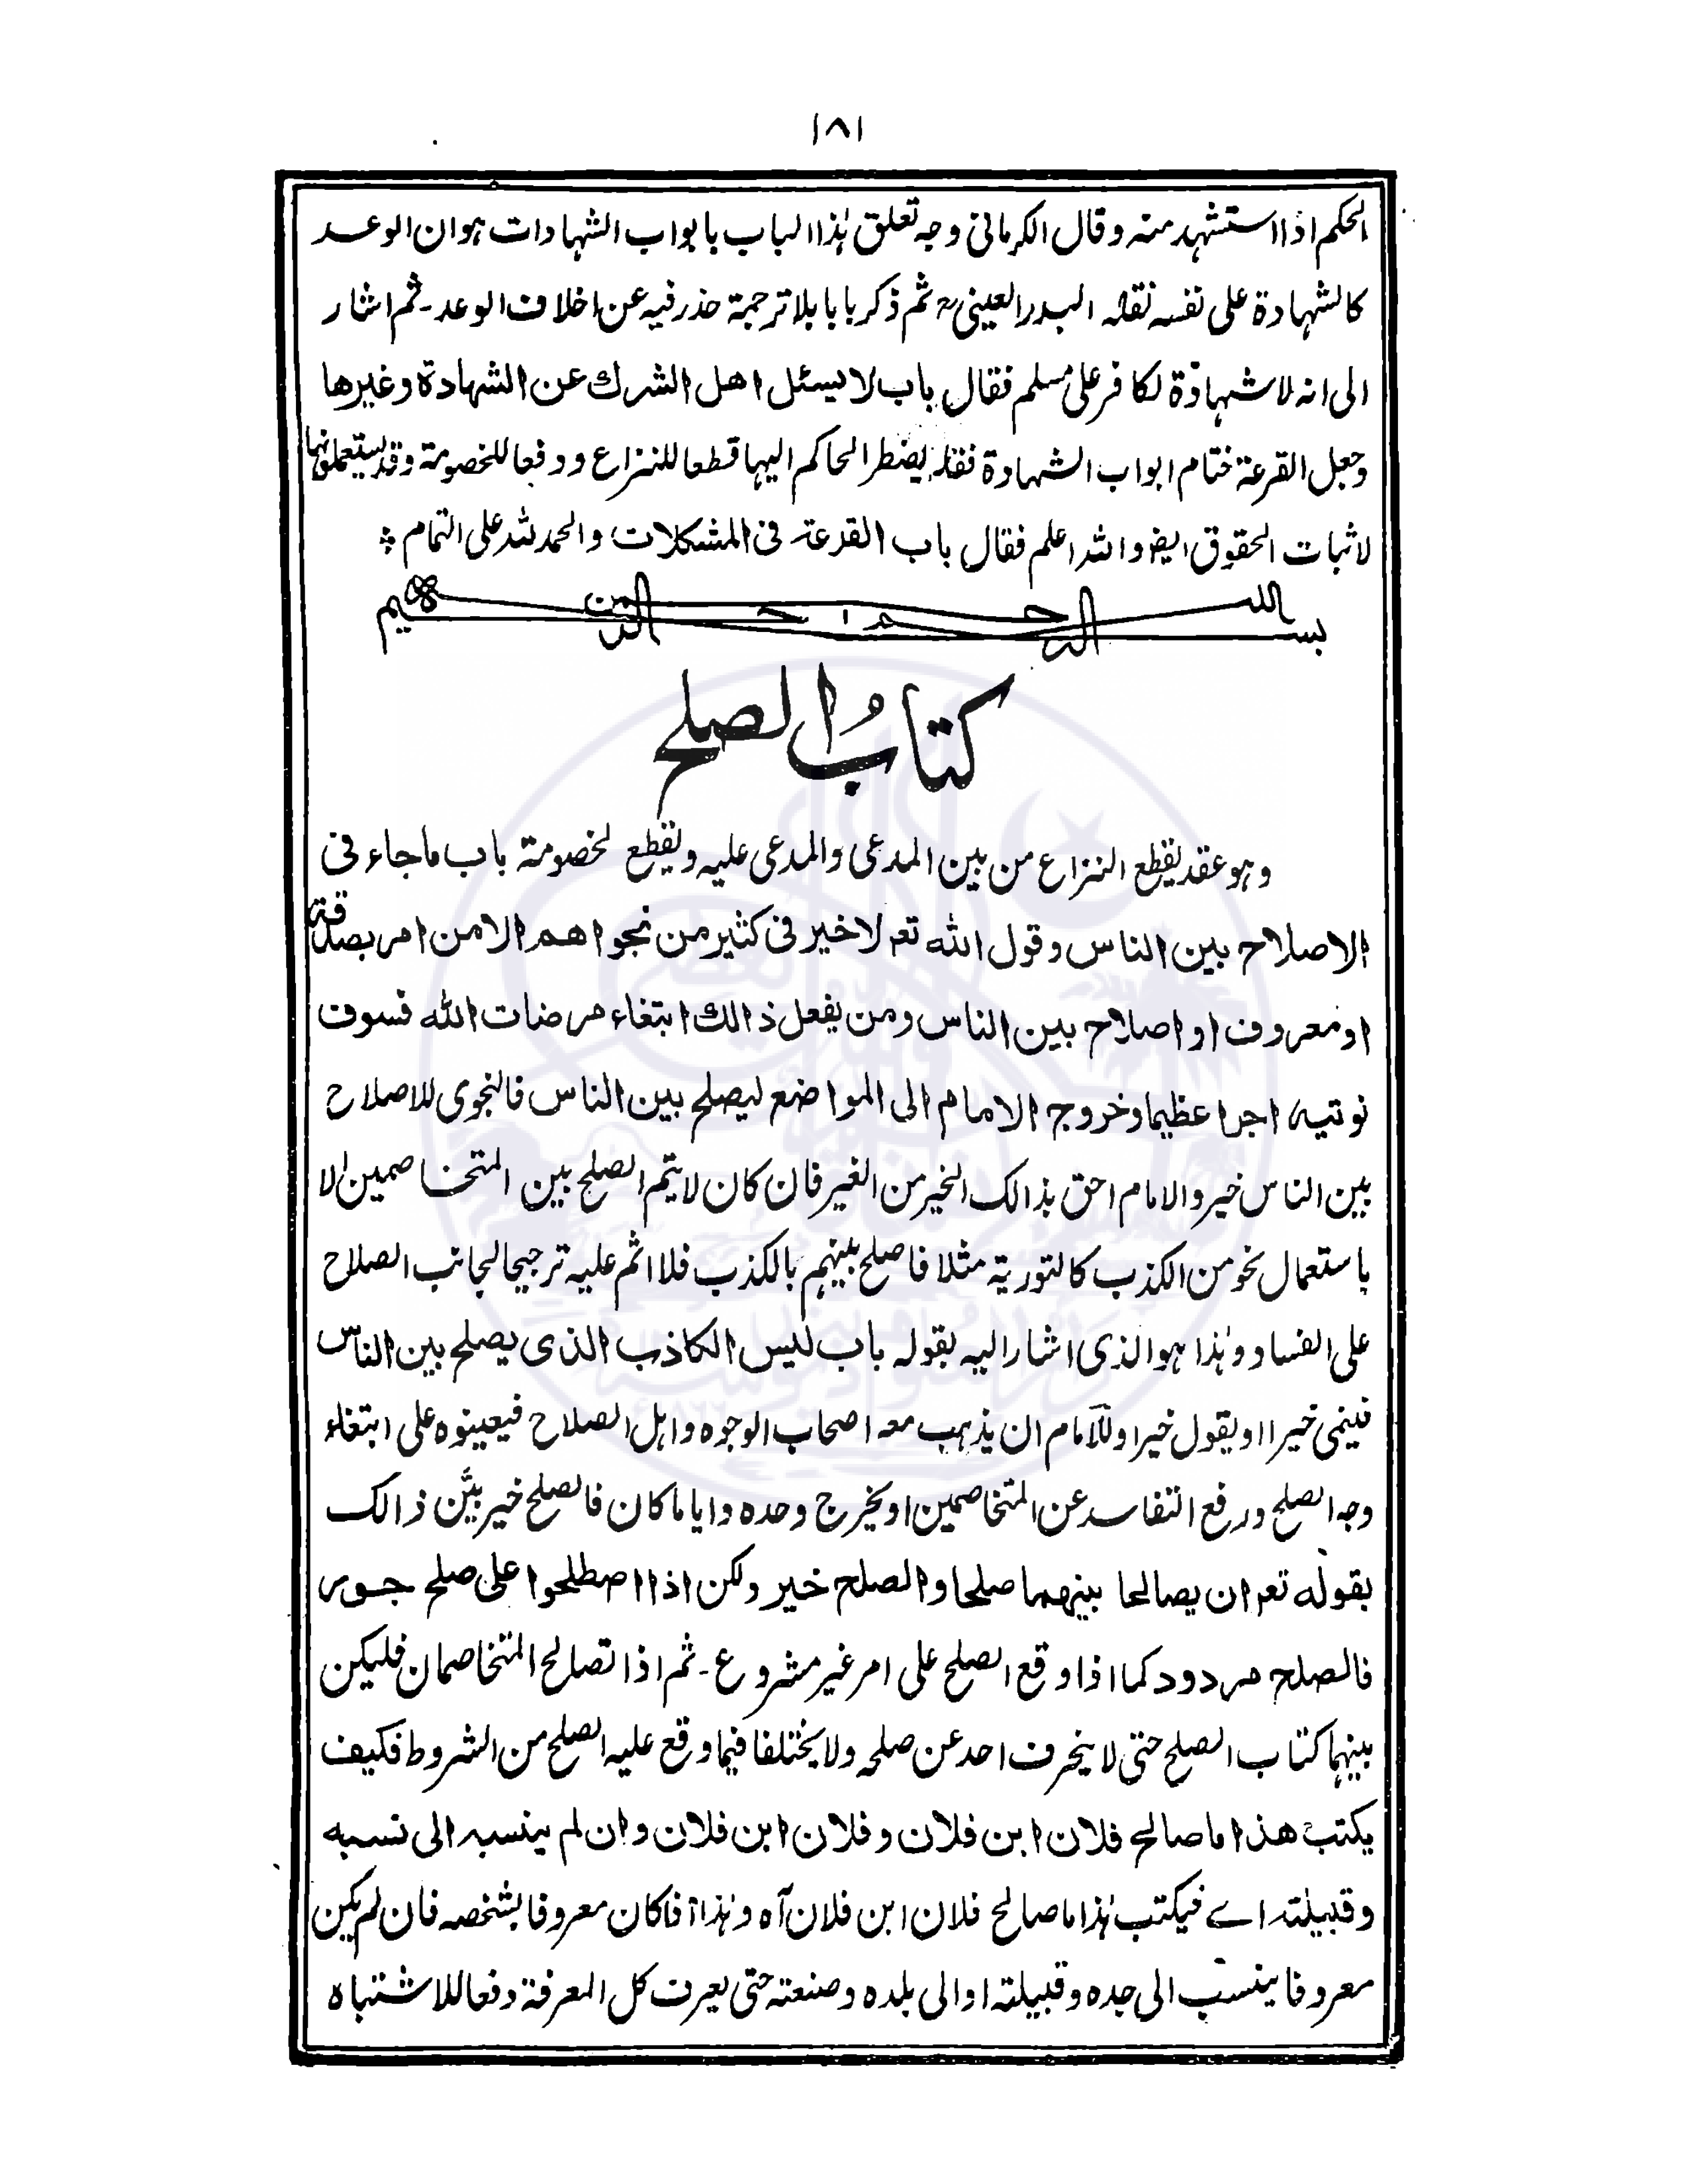 ١٨١
الحكم اذا استشهد منه وقال الكرمانى وجه تعلق هٰذا الباب بابواب الشهادات هو ان الوعد
كالشهادة على نفسه نقله البدر العينى ثم ذكر بابا بلا ترجمة حذر فيه عن اخلاف الوعد۔ ثم اشار
الى انه لا شهادة لكافر على مسلم فقال باب لا يسئل اهل الشرك عن الشهادة وغيرها
وجعل القرعة ختام ابواب الشهادة فقد يضطر الحاكم اليها قطعا للنزاع ودفعا للخصومة وقد يستعملونها
لاثبات الحقوق ايضا والله اعلم فقال باب القرعة فى المشكلات والحمد لله على التمام
بسم الله الرحمن الرحيم
كتابُ الصلح
وهو عقد يقطع النزاع من بين المدعى والمدعى عليه ويقطع لخصومة باب ما جاء فى
الاصلاح بين الناس وقول الله تعـ لا خير فى كثير من نجواهم الا من امر بصدقة
او معروف او اصلاح بين الناس ومن يفعل ذالك ابتغاء مرضات الله فسوف
نوتيه اجرا عظيما وخروج الامام الى المواضع ليصلح بين الناس فالنجوى للاصلاح
بين الناس خير والامام احق بذالك الخير من الغير فان كان لا يتم الصلح بين المتخاصمين الا
باستعمال نحو من الكذب كالتورية مثلا فاصلح بينهم بالكذب فلا اثم عليه ترجيحا لجانب الصلاح
على الفساد وهٰذا هو الذى اشار اليه بقوله باب ليس الكاذب الذى يصلح بين الناس
فينمى خيرا او يقول خيرا وللامام ان يذهب معه اصحاب الوجوه واهل الصلاح فيعينوه على ابتغاء
وجه الصلح ورفع التفاسد عن المتخاصمين او يخرج وحده وايا ما كان فالصلح خير بيّن ذالك
بقوله تعـ ان يصالحا بينهما صلحا والصلح خير ولكن اذا اصطلحوا على صلح جور
فالصلح مردود كما اذا وقع الصلح على امر غير مشروع۔ ثم اذا تصالح المتخاصمان فليكن
بينهما كتاب الصلح حتى لا ينحرف احد عن صلحه ولا يختلفا فيما وقع عليه الصلح من الشروط فكيف
يكتب هذا ما صالح فلان ابن فلان وفلان ابن فلان وان لم ينسبه الى نسبه
وقبيلته اے فيكتب هٰذا ما صالح فلان ابن فلان آه وهٰذا اذا كان معروفا بشخصه فان لم يكن
معروفا ينسب الى جده وقبيلته او الى بلده وصنعته حتى يعرف كل المعرفة دفعا للاشتباه